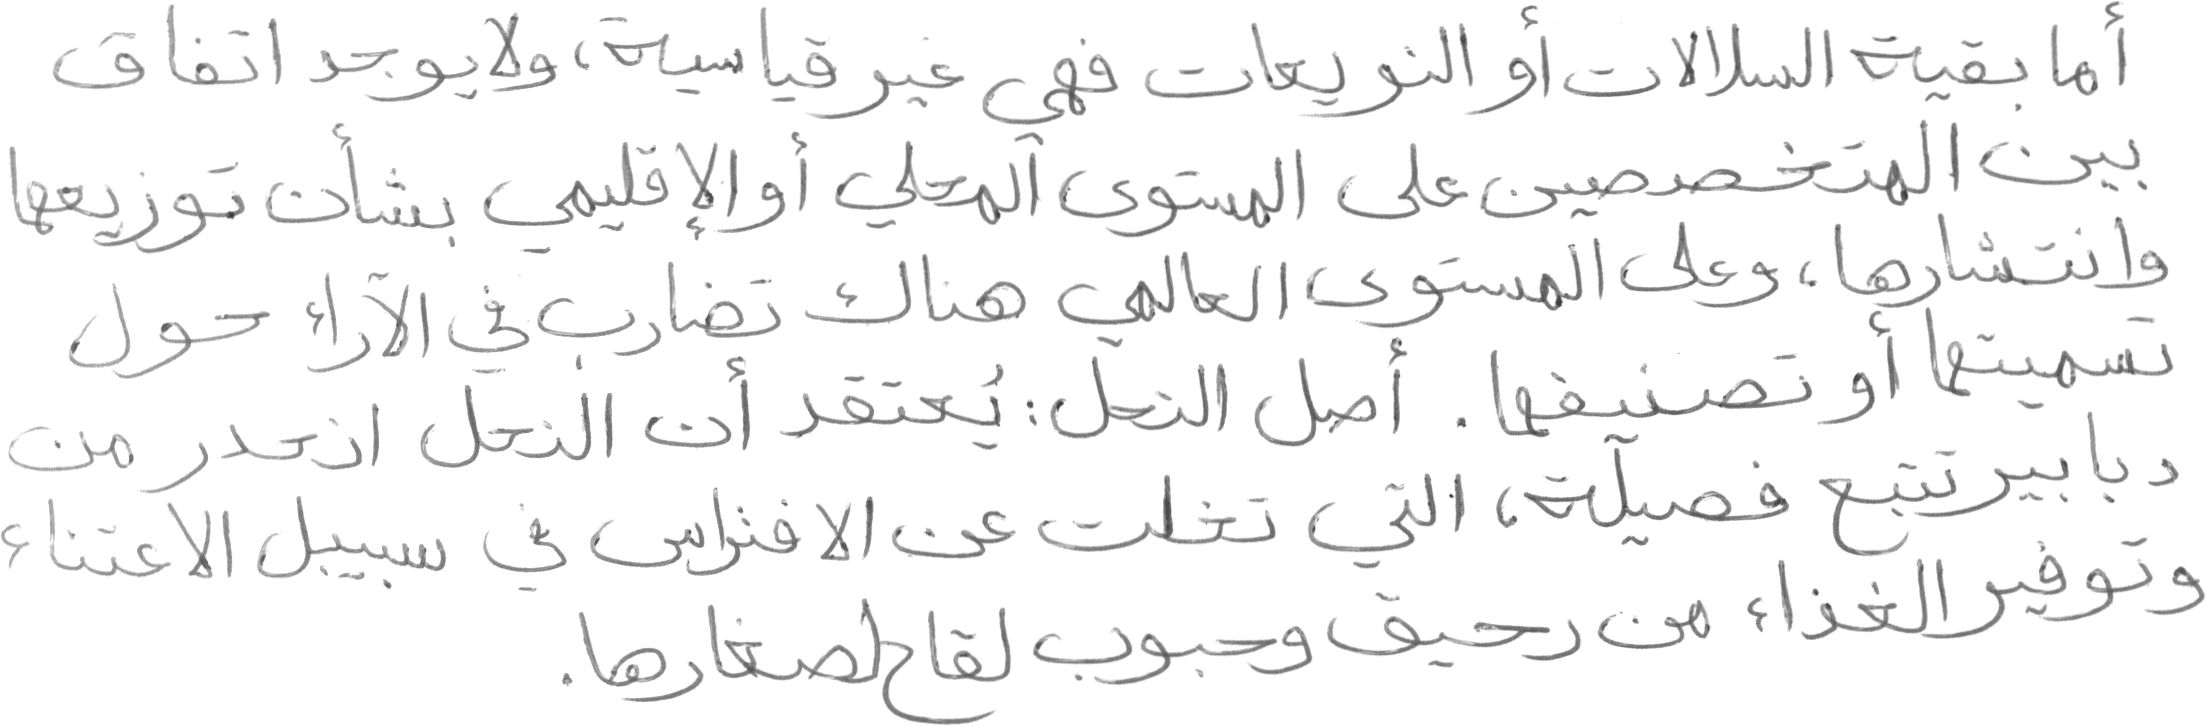 أما بقية السلالات أو النويعات فهي غير قياسية، ولا يوجد اتفاق
بين المتخصصين على المستوى المحلي أو الإقليمي بشأن توزيعها
وانتشارها، وعلى المستوى العالمي هناك تضارب في الآراء حول
تسميتها أو تصنيفها. أصل النحل: يُعتقد أن النحل انحدر من
دبابير تتبع فصيلة، التي تخلت عن الافتراس في سبيل الاعتناء
وتوفير الغذاء من رحيق وحبوب لقاح لصغارها.